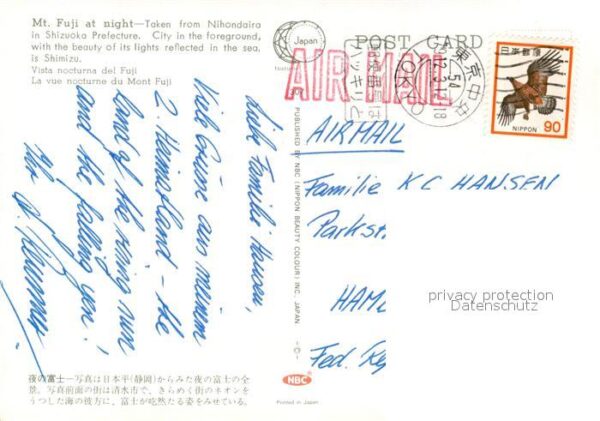 Mt. Fuji at night—Taken from Nihondaira
in Shizuoka Prefecture. City in the foreground,
with the beauty of its lights reflected in the sea,
is Shimizu.
Vista nocturna del Fuji
La vue nocturne du Mont Fuji
Japan
POST CARD
AIR MAIL
東京中央
54
12.3.12-18
TOKYO
日本郵便
NIPPON
90
Liebe Familie Hansen,
Viele Grüße aus meinem
2. Heimatland - the
land of the rising sun
and the falling yen!
Ihr
PUBLISHED BY NBC (NIPPON BEAUTY COLOUR) INC. JAPAN
AIRMAIL
Familie K C HANSEN
Parkst.
HAM
Fed. Re
privacy protection
Datenschutz
夜の富士—写真は日本平(静岡)からみた夜の富士の全
景。写真前面の街は清水市で、きらめく街のネオンを
うつした海の彼方に、富士が屹然たる姿をみせている。
NBC
Printed in Japan